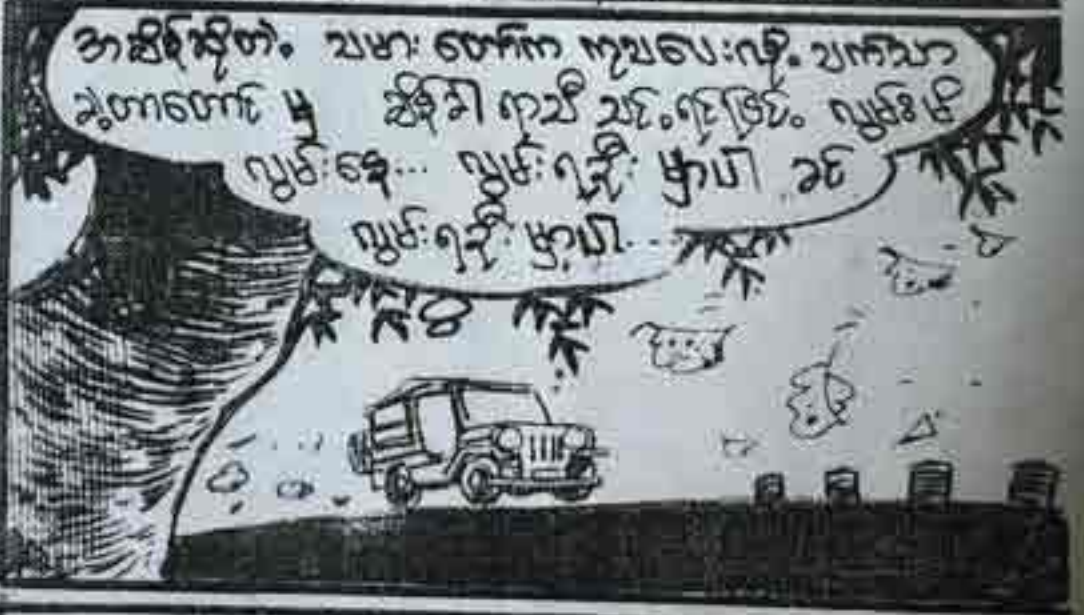 အဆိပ်ဆိုတဲ့ သမား တော်က ကုသပေးလို့ သက်သာ
ခဲ့တာတောင် မှ ဆိုခါ ရာသီ သင့်ရင်ဖြင့် လွမ်းမိ
လွမ်းနေ... လွမ်းရဦး မှာပါ ခင်
လွမ်းရဦး မှာပါ...